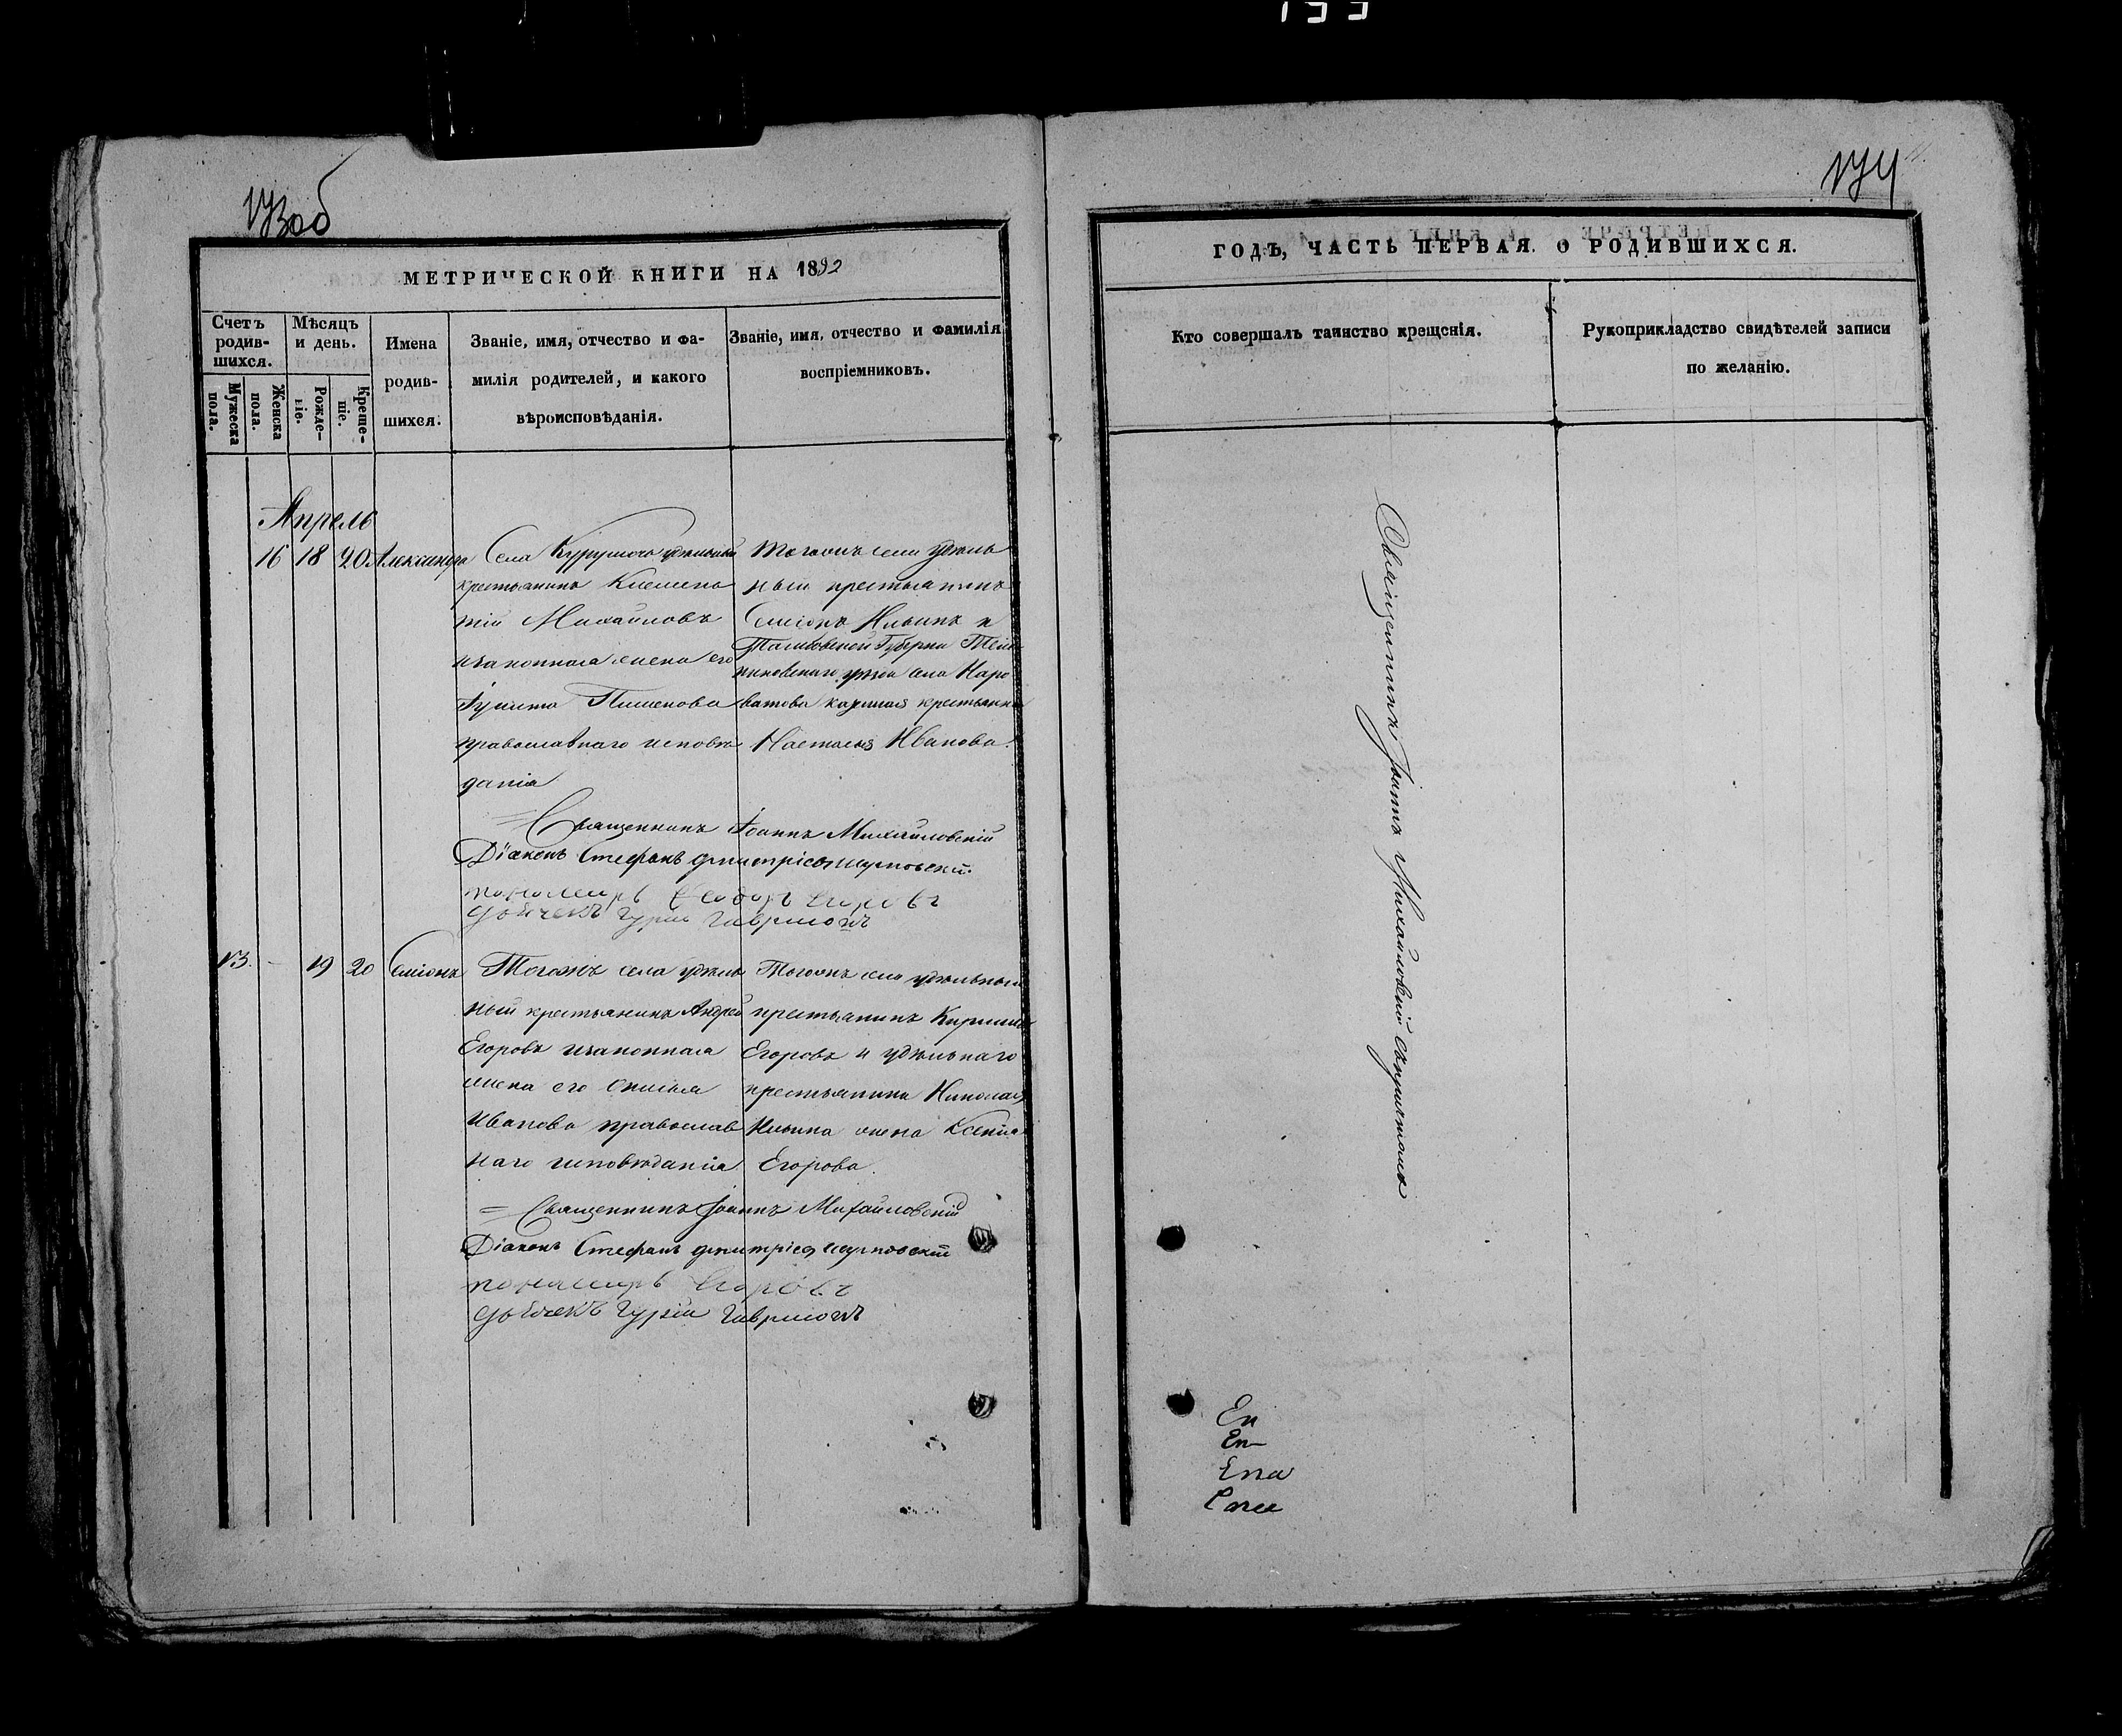 133
173об
174
МЕТРИЧЕСКОЙ КНИГИ НА 1892
Счетъ родив-шихся.
Мѣсяцъ и день.
Имена родив-шихся.
Званіе, имя, отчество и фа-
милія родителей, и какого
вѣроисповѣданія.
Званіе, имя, отчество и фамилія
воспріемниковъ.
Мужеска пола.
Женска пола.
Рожде-ніе.
Креще-ніе.
Апрель
16 18 20 Александра
Села Курумоча удѣльный
крестьянинъ Клемен
тій Михайловъ
изаконная жена его
Іулита Пименова
православнаго исповѣ
данія
Тогожъ села удѣль
ный крестьянинъ
Симіонъ Ильинъ и
Тамбовской Губерніи Тем
никовскаго уѣзда села Наро
ватова крестьянка
Настасья Иванова.
Священникъ Іоаннъ Михайловскій
Діаконъ Стефанъ
пономарь Ѳеодоръ Егоровъ
дьячекъ Гурій Гавриловъ
13. - 19 20 Симіонъ
Тогожъ села удѣль
ный крестьянинъ Андрей
Егоровъ изаконная
жена его
Иванова православ
наго исповѣданія
Тогожъ села удѣльный
крестьянинъ Кириллъ
Егоровъ и удѣльнаго
крестьянина Николая
Ильина жена Ксенія
Егорова.
Священникъ Іоаннъ Михайловскій
Діаконъ Стефанъ
пономарь Егоровъ
дьячекъ Гурій Гавриловъ
ГОДЪ, ЧАСТЬ ПЕРВАЯ. О РОДИВШИХСЯ.
Кто совершалъ таинство крещенія.
Рукоприкладство свидѣтелей записи
по желанію.
Священникъ Іоаннъ Михайловскій
Еп
Еп
Епа
Епа